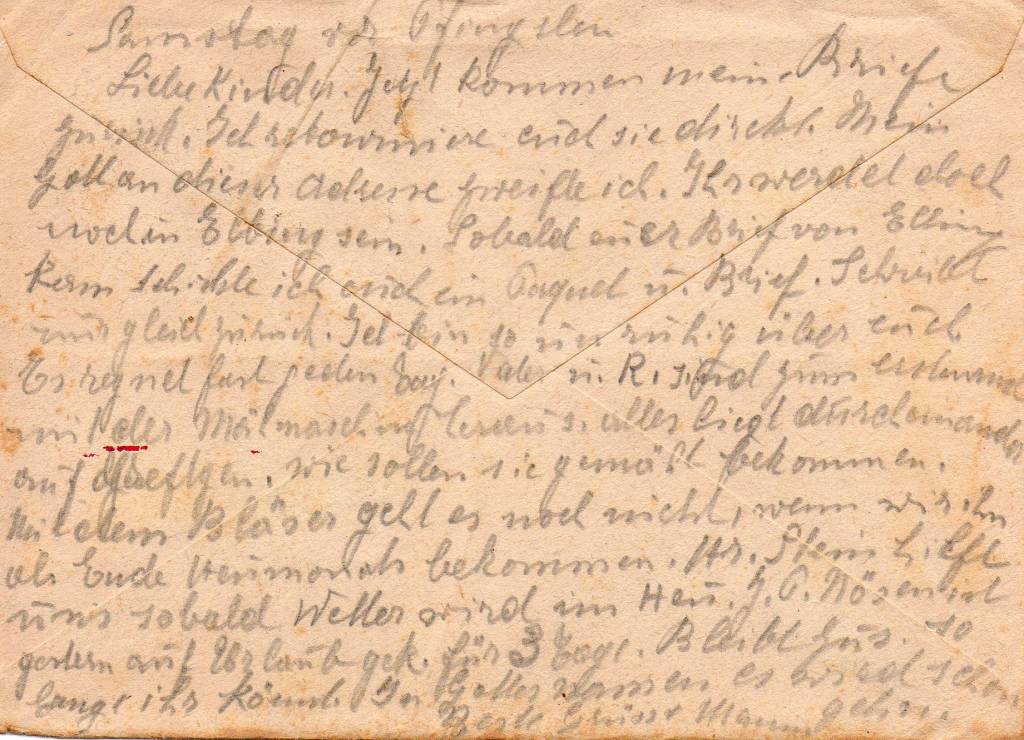 Samstag vor Pfingsten
Liebe Kinder. Jetzt kommen meine Briefe
zurück. Ich retourniere euch sie direkt. Mein
Gott an dieser Adresse zweifle ich. Ihr werdet doch
noch in Elbing sein. Sobald euer Brief von Elbing
kom schicke ich euch ein Paquet u. Brief. Schreibt
mir gleich zurück. Ich bin so unruhig über euch
Es regnet fast jeden Tag. Vater u. R. sind zum erstenmal
mit der Mähmaschine heraus. alles liegt durcheinander
auf, wie sollen sie gemäht bekommen.
Mit dem Bläser geht es noch nicht, wenn wir ihn
als Ende Heumonat bekommen. Hr. Stein hilft
uns sobald Wetter wird im Heu. J. P. Nösen ist
gestern auf Urlaub gek. für 3 Tage. Bleibt zus. so
lange ihr könnt. In Gottes namen es wird schon
gehn.
Beste Grüsse Mamm